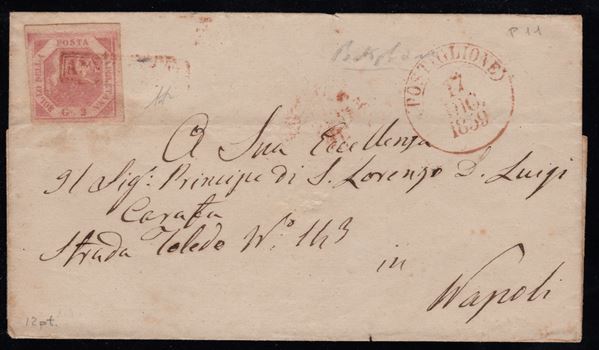 P 11
POSTA
BOLLO DELLA
NAPOLETANA
G. 2
POSTIGLIONE
17
1859
A Sua Eccellenza
Il Sigr. Principe di S. Lorenzo D. Luigi
Carafa
Strada Toledo No. 143
in
Napoli
12pt.